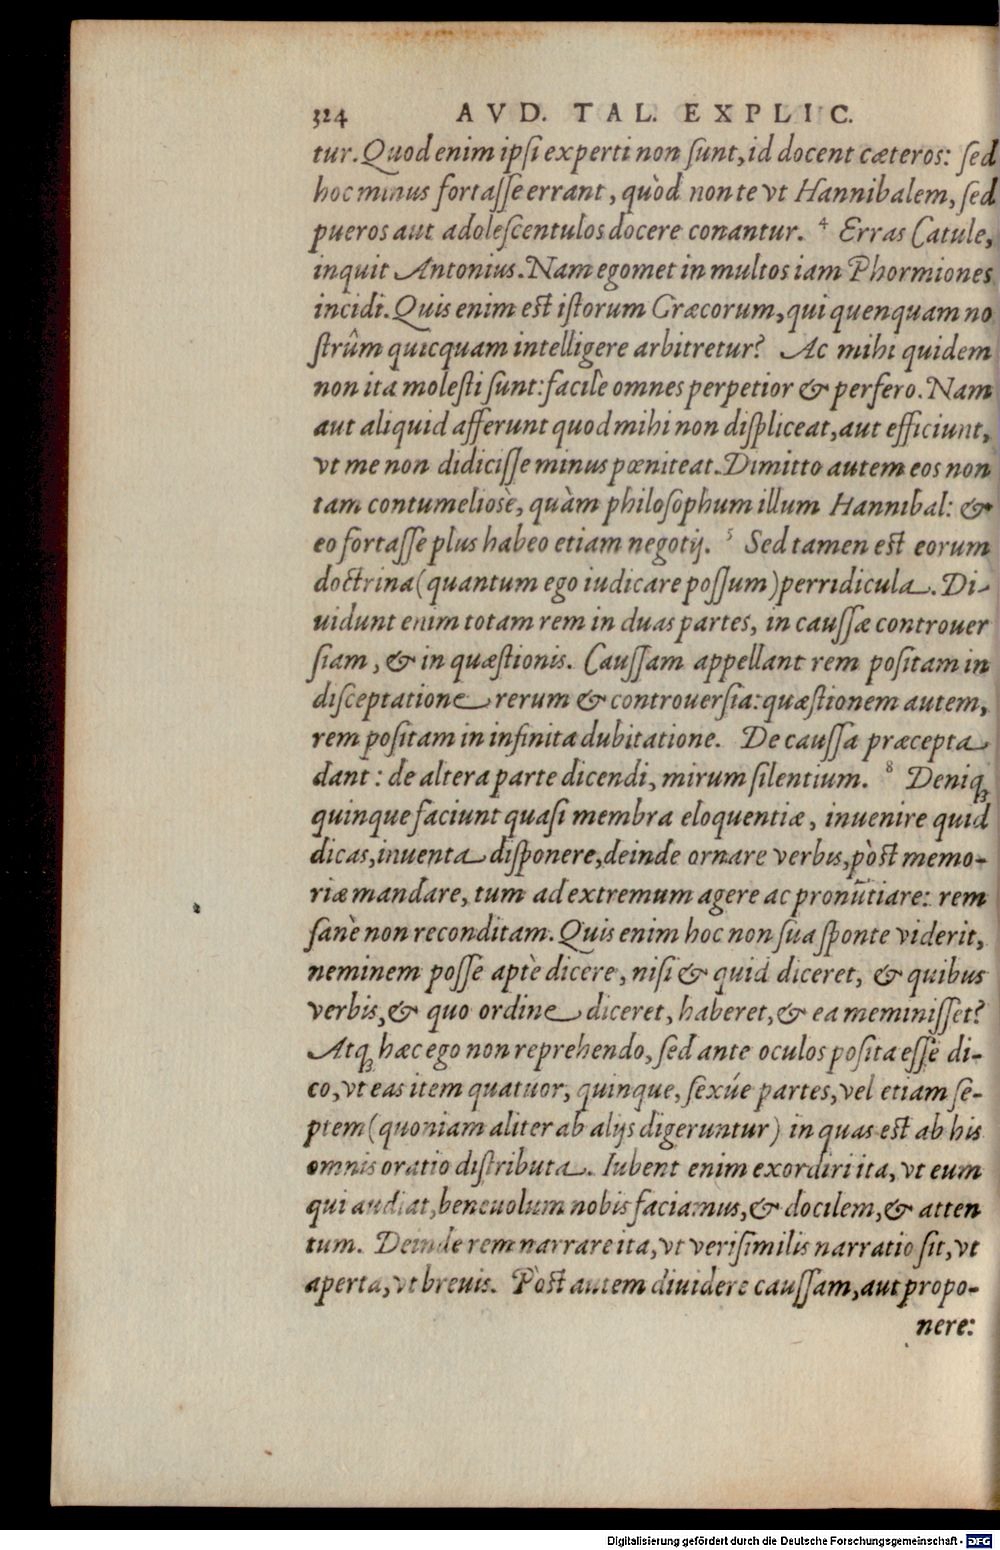 324 AVD. TAL. EXPLIC.
tur. Quod enim ipsi experti non sunt, id docent cæteros: sed
hoc minus fortasse errant, quòd non te vt Hannibalem, sed
pueros aut adolescentulos docere conantur. 4 Erras Catule,
inquit Antonius. Nam egomet in multos iam Phormiones
incidi. Quis enim est istorum Græcorum, qui quenquam no
strûm quicquam intelligere arbitretur? Ac mihi quidem
non ita molesti sunt: facilè omnes perpetior & perfero. Nam
aut aliquid afferunt quod mihi non displiceat, aut efficiunt,
vt me non didicisse minus pœniteat. Dimitto autem eos non
tam contumeliosè, quàm philosophum illum Hannibal: &
eo fortasse plus habeo etiam negotij. 5 Sed tamen est eorum
doctrina (quantum ego iudicare possum) perridicula. Di-
uidunt enim totam rem in duas partes, in caussæ controuer
siam, & in quæstionis. Caussam appellant rem positam in
disceptatione rerum & controuersia: quæstionem autem,
rem positam in infinita dubitatione. De caussa præcepta
dant: de altera parte dicendi, mirum silentium. 8 Deniqꝫ
quinque faciunt quasi membra eloquentiæ, inuenire quid
dicas, inuenta disponere, deinde ornare verbis, pòst memo-
riæ mandare, tum ad extremum agere ac pronũtiare: rem
sanè non reconditam. Quis enim hoc non sua sponte viderit,
neminem posse aptè dicere, nisi & quid diceret, & quibus
verbis, & quo ordine diceret, haberet, & ea meminisset?
Atqꝫ hæc ego non reprehendo, sed ante oculos posita essè di-
co, vt eas item quatuor, quinque, sexúe partes, vel etiam se-
ptem (quoniam aliter ab alijs digeruntur) in quas est ab his
omnis oratio distributa. Iubent enim exordiri ita, vt eum
qui audiat, beneuolum nobis faciamus, & docilem, & atten
tum. Deinde rem narrare ita, vt verisimilis narratio sit, vt
aperta, vt breuis. Pòst autem diuidere caussam, aut propo-
nere:
Digitalisierung gefördert durch die Deutsche Forschungsgemeinschaft - DFG